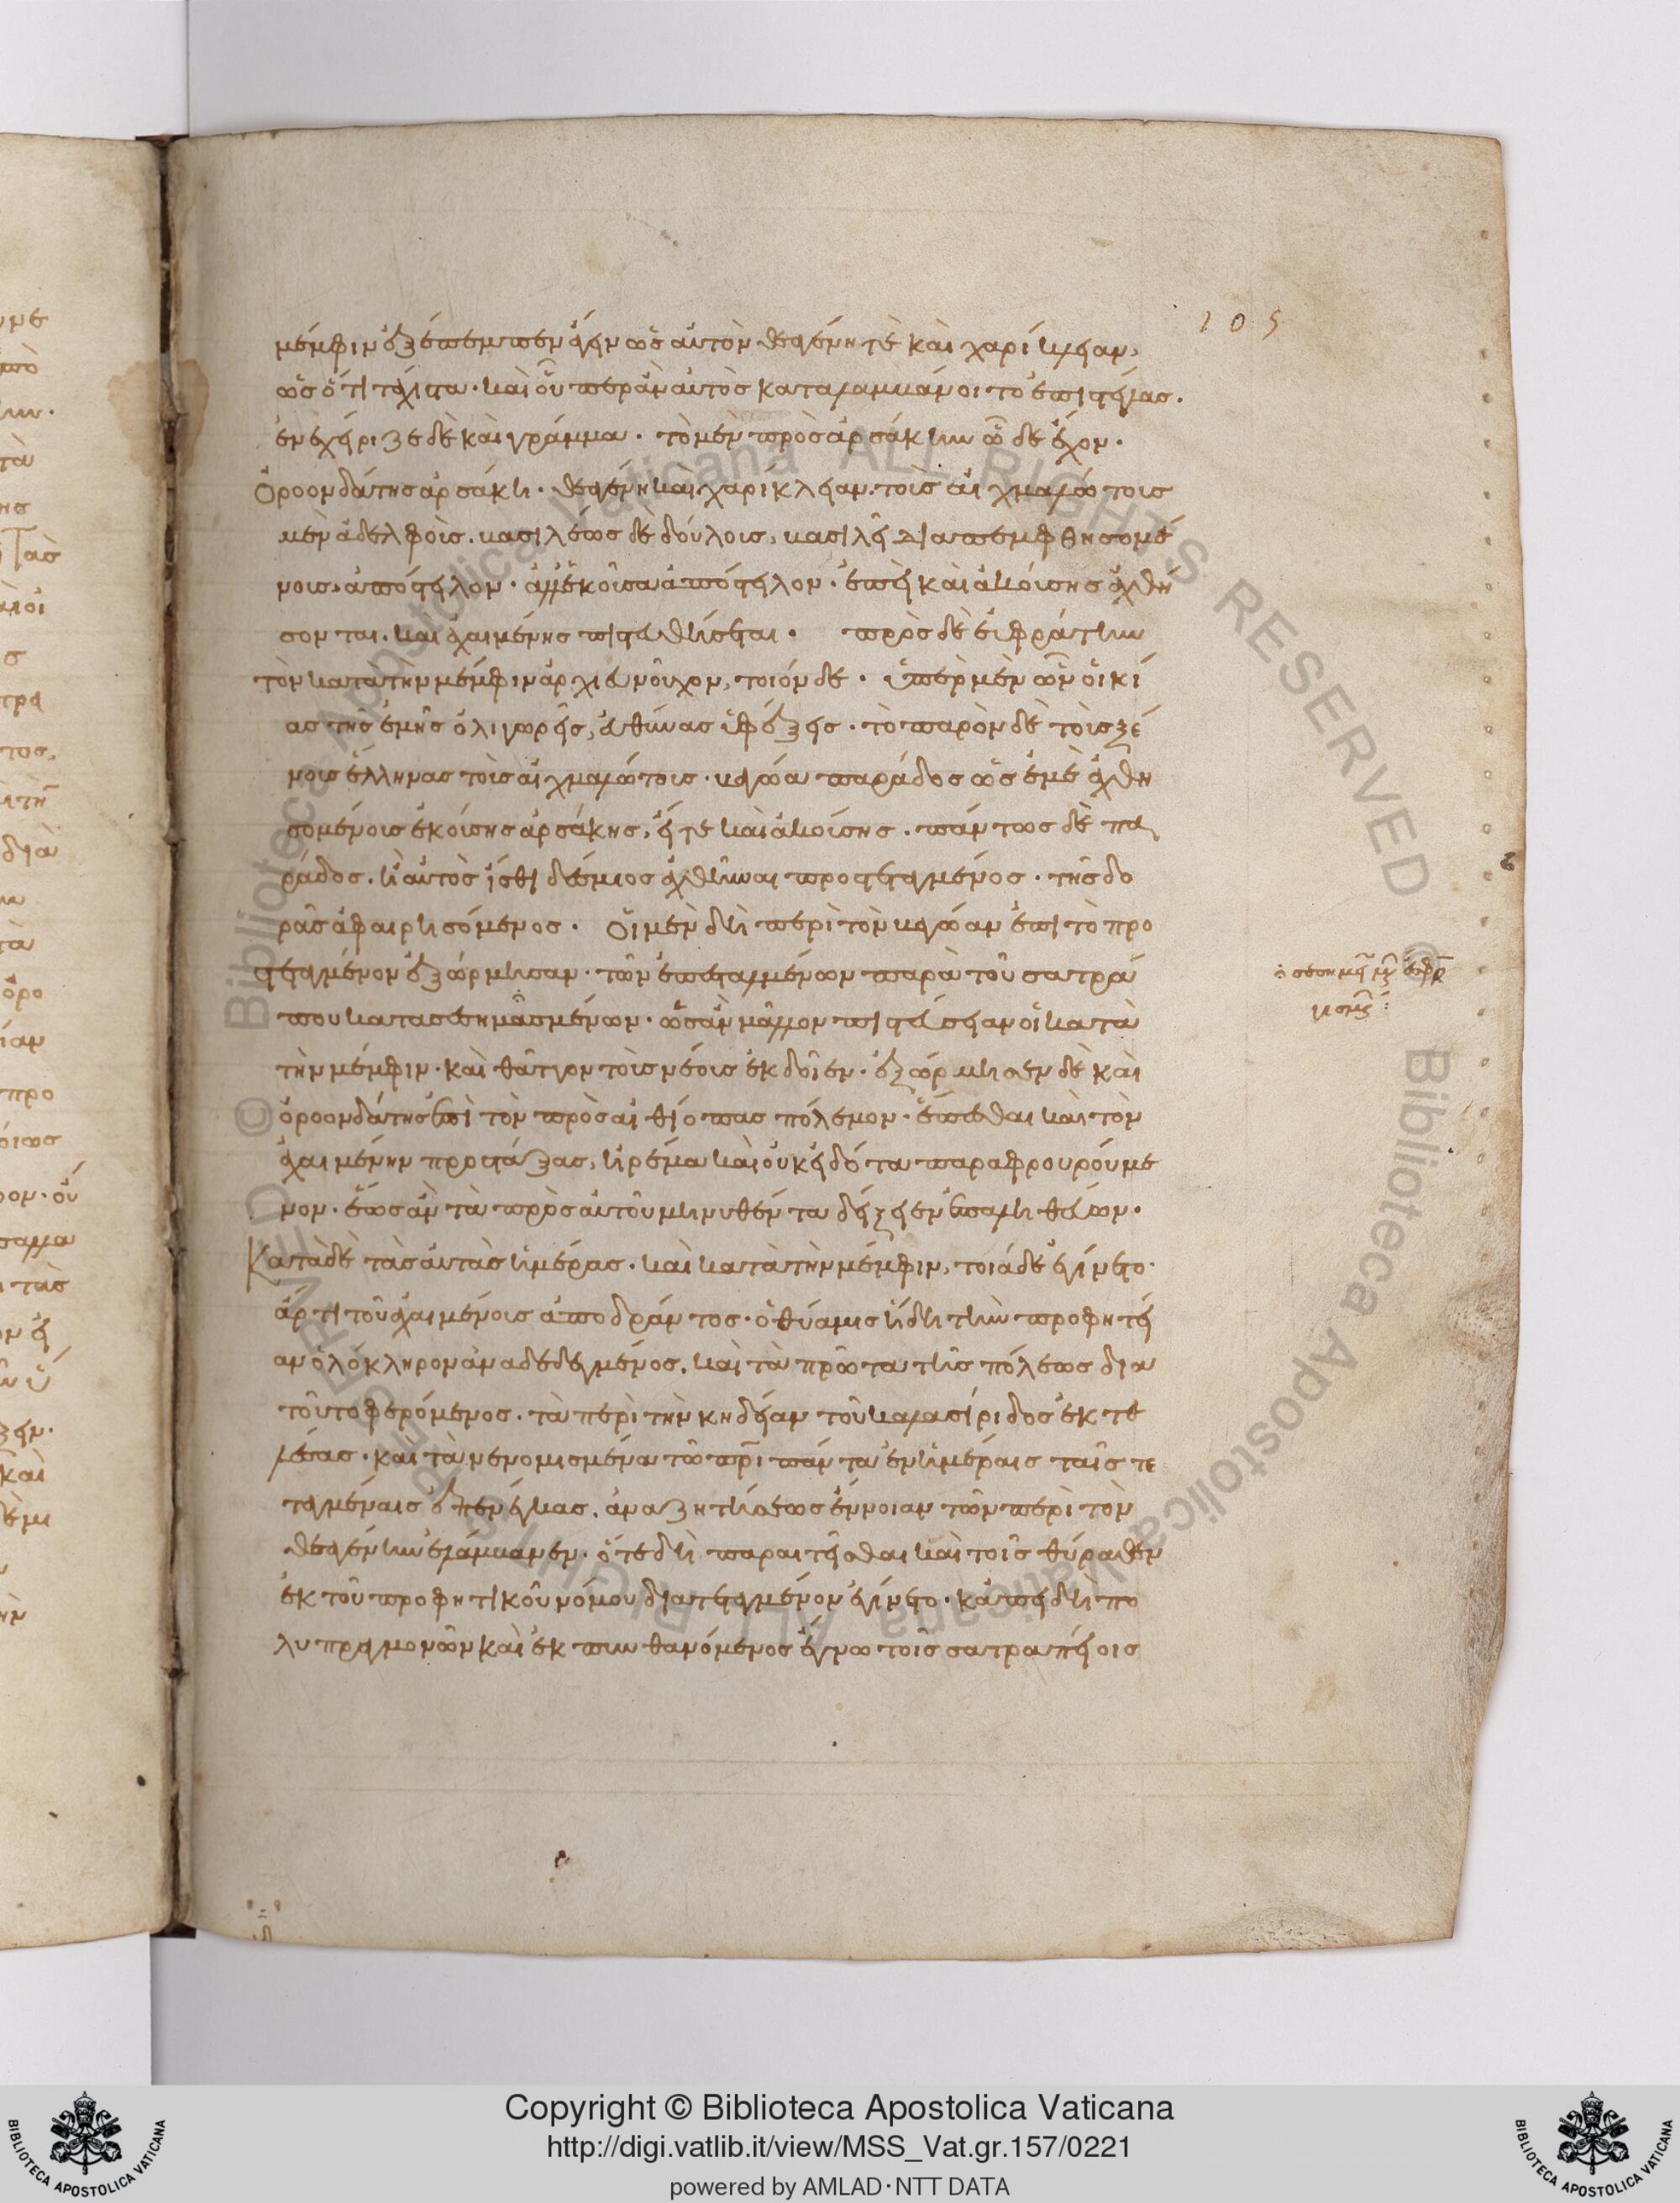 105
μέμφιν ἐξέπεμπεν ἄγειν ὡς αὐτὸν θεαγένη τὲ καὶ χαρίκλειαν,
ὡς ὅτι τάχιστα· καὶ οὗ περ ἂν αὐτὸς καταλαμβάνοι τὸ ἐπιστείλας.
ἐνεχείριζε δὲ καὶ γράμμα· τὸ μὲν πρὸς ἀρσάκην ὧδε ἔχον·
Ὀροονδάτης ἀρσάκη· θεαγένη καὶ χαρίκλειαν τοὺς αἰχμαλώτους
μὲν ἀδελφοὺς, βασιλέως δὲ δούλους, βασιλεῖ διαπεμφθησομέ
νους ἀπόστειλον· ἀλλ' ἑκοῦσα ἀπόστειλον· ἐπεὶ καὶ ἀκούσης ἀχθή
σονται. καὶ ἀχαιμένης πιστευθήσεται· πρὸς δὲ εὐφράτην
τὸν κατὰ τὴν μέμφιν ἀρχιευνοῦχον, τοιόνδε· ὑπὲρ μὲν ὧν οἰκί
ας τῆς ἐμῆς ὀλιγωρεῖς, εὐθύνας ὑφέξεις· τὸ παρὸν δὲ τοὺς ξέ
νους ἕλληνας τοὺς αἰχμαλώτους· βαγώα παράδος ὡς ἐμὲ ἀχθη
σομένους ἑκούσης ἀρσάκης, εἴτε καὶ ἀκούσης. πάντως δὲ πα
ράδος. ἢ αὐτὸς ἴσθι δέσμιος ἀχθῆναι προστεταγμένος. τῆς δο
ρᾶς ἀφαιρησόμενος. Οἱ μὲν δὴ περὶ τὸν βαγώαν ἐπὶ τὸ προ
στεταγμένον ἐξώρμησαν· τῶν ἐπεσταλμένων παρὰ τοῦ σατρά
που κατασεσημασμένων· ὡς ἂν μᾶλλον πιστεύσειαν οἱ κατὰ
τὴν μέμφιν. καὶ θᾶττον τοὺς νέους ἐκδοῖεν· ἐξώρμησεν δὲ καὶ
ὀροονδάτης ἐπὶ τὸν πρὸς αἰθίοπας πόλεμον· ἕπεσθαι καὶ τὸν
ἀχαιμένην προστάξας, ἠρέμα καὶ οὐκ εἰδότα παραφρουρούμε
νον· ἕως ἂν τὰ πρὸς αὐτοῦ μηνυθέντα δείξειεν ἐπαληθεύων.
Κατὰ δὲ τὰς αὐτὰς ἡμέρας. καὶ κατὰ τὴν μέμφιν, τοιάδε ἐγίνετο·
ἄρτι τοῦ ἀχαιμένους ἀποδράντος· ὁ θύαμις ἤδη τὴν προφητεί
αν ὁλόκληρον ἀναδεδειγμένος, καὶ τὰ πρῶτα τῆς πόλεως δια
τοῦτο φερόμενος· τὰ περὶ τὴν κηδείαν τοῦ καλασίριδος ἐκτε
λέσας· καὶ τὰ νενομισμένα τῶ πρὶ πάντα ἐν ἡμέραις ταῖς τε
ταγμέναις ἐπενέγκας, ἀναζητήσεως ἔννοιαν τῶν περὶ τὸν
θεαγένην ἐλάμβανεν· ὅτε δὴ παραιτεῖσθαι καὶ τοῖς θύραθεν
ἐκ τοῦ προφητικοῦ νόμου διατεταγμένον ἐγίνετο· κἀπειδὴ πο
λυπραγμονῶν καὶ ἐκπυνθανόμενος ἔγνω τοῖς σατραπείοις
Copyright © Biblioteca Apostolica Vaticana
http://digi.vatlib.it/view/MSS_Vat.gr.157/0221
powered by AMLAD·NTT DATA
BIBLIOTECA APOSTOLICA VATICANA
BIBLIOTECA APOSTOLICA VATICANA